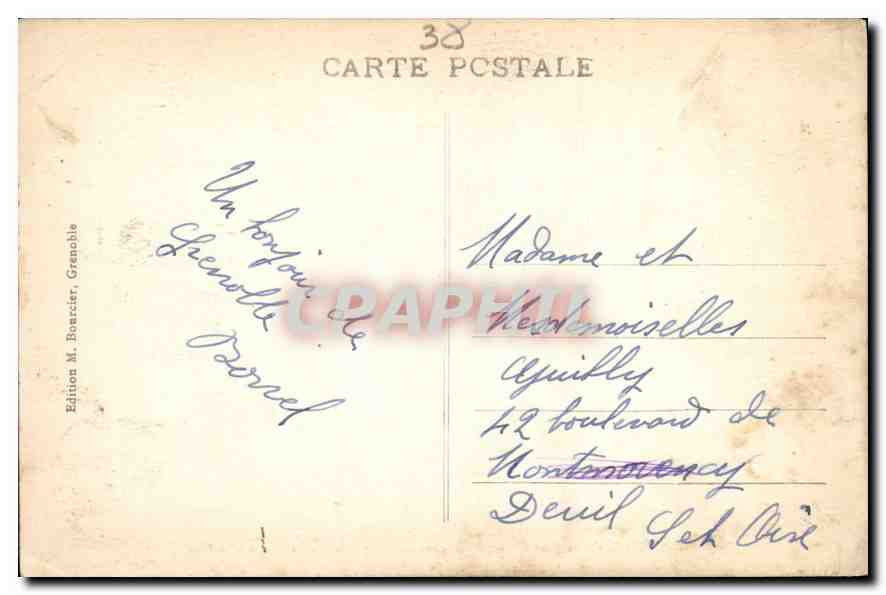 38
CARTE POSTALE
Un bonjour de
Grenoble
Borrel
Edition M. Bourcier, Grenoble
CPAPHIL
Madame et
Mesdemoiselles
42 boulevard de
Montmorency
Deuil S et Oise